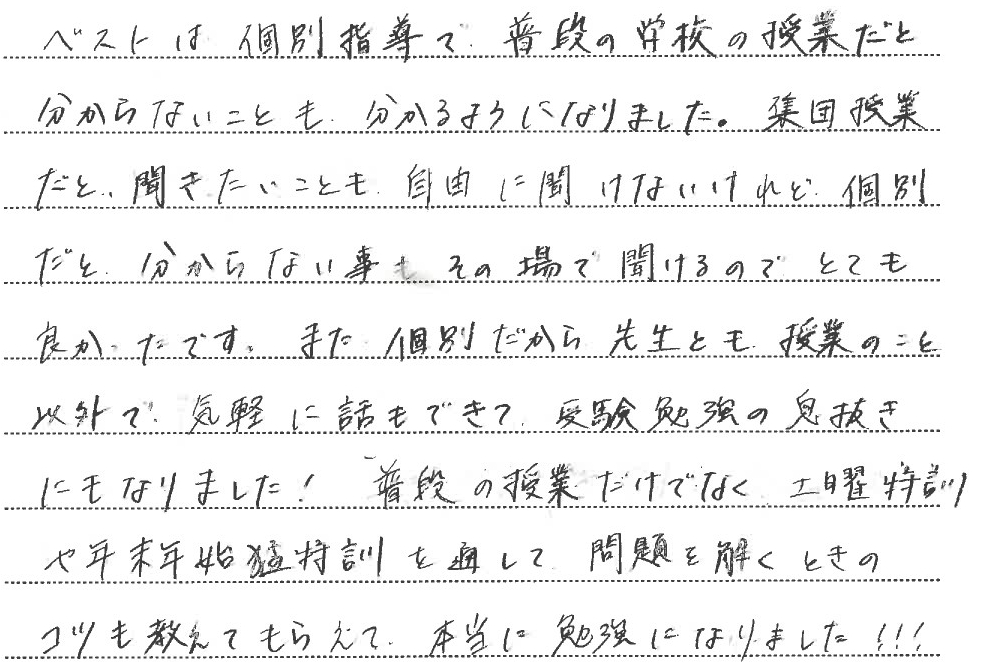 ベストは、個別指導で、普段の学校の授業だと
分からないことも、分かるようになりました。集団授業
だと、聞きたいことも、自由に聞けないけれど、個別
だと、分からない事も、その場で聞けるのでとても
良かったです。また、個別だから先生とも、授業のこと
以外で、気軽に話もできて、受験勉強の息抜き
にもなりました！ 普段の授業だけでなく、土曜特訓
や年末年始猛特訓を通して、問題を解くときの
コツも教えてもらえて、本当に勉強になりました!!!